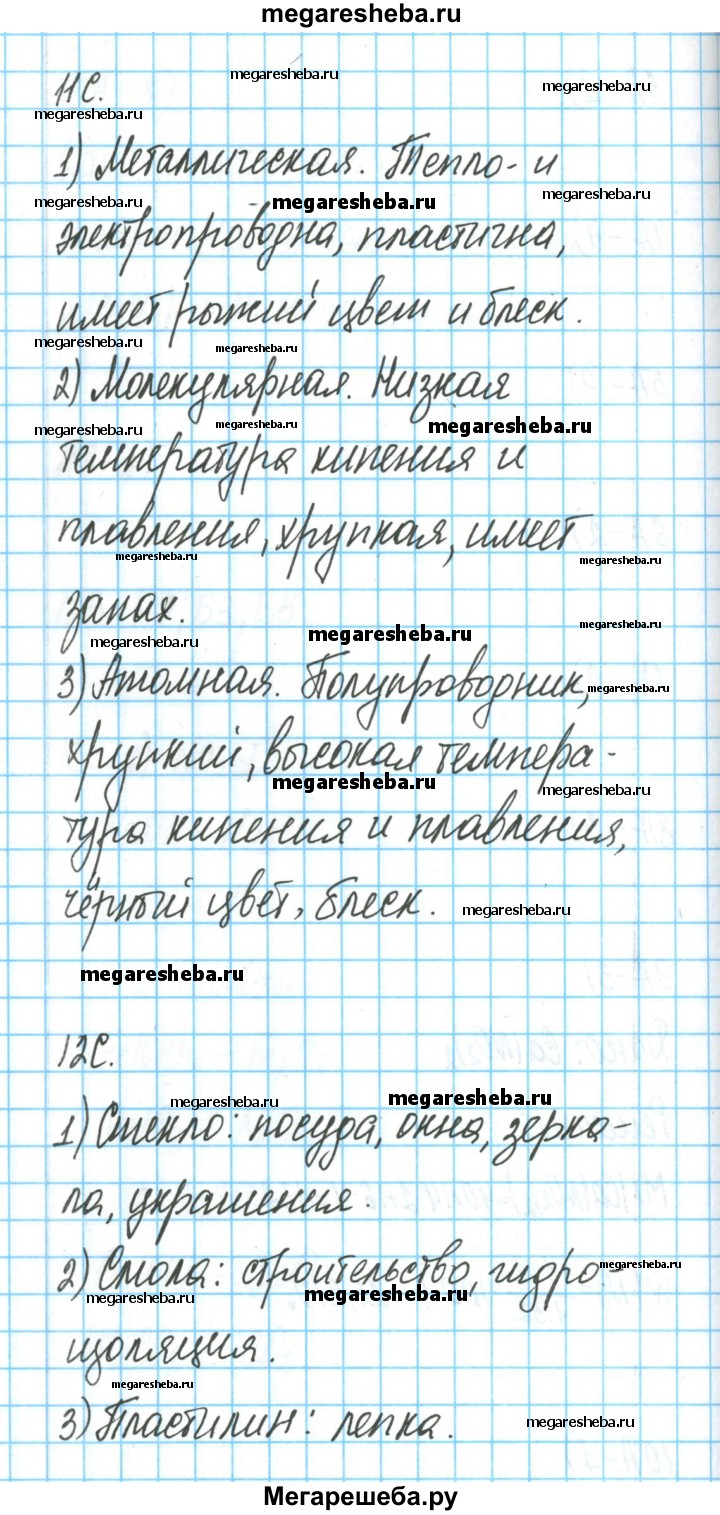 megaresheba.ru
11С.
megaresheba.ru
megaresheba.ru
megaresheba.ru
1) Металлическая. Тепло- и
megaresheba.ru
megaresheba.ru
megaresheba.ru
электропроводна, пластична,
имеет рыжий цвет и блеск.
megaresheba.ru
megaresheba.ru
2) Молекулярная. Низкая
megaresheba.ru
megaresheba.ru
megaresheba.ru
температура кипения и
плавления, хрупкая, имеет
megaresheba.ru
megaresheba.ru
запах.
megaresheba.ru
megaresheba.ru
megaresheba.ru
3) Атомная. Полупроводник,
megaresheba.ru
хрупкий, высокая темпера-
megaresheba.ru
megaresheba.ru
тура кипения и плавления,
чёрный цвет, блеск.
megaresheba.ru
megaresheba.ru
12С.
megaresheba.ru
megaresheba.ru
1) Стекло: посуда, окна, зерка-
ла, украшения.
2) Смола: строительство, гидро-
megaresheba.ru
megaresheba.ru
megaresheba.ru
изоляция.
megaresheba.ru
3) Пластилин: лепка.
megaresheba.ru
Мегарешеба.ру